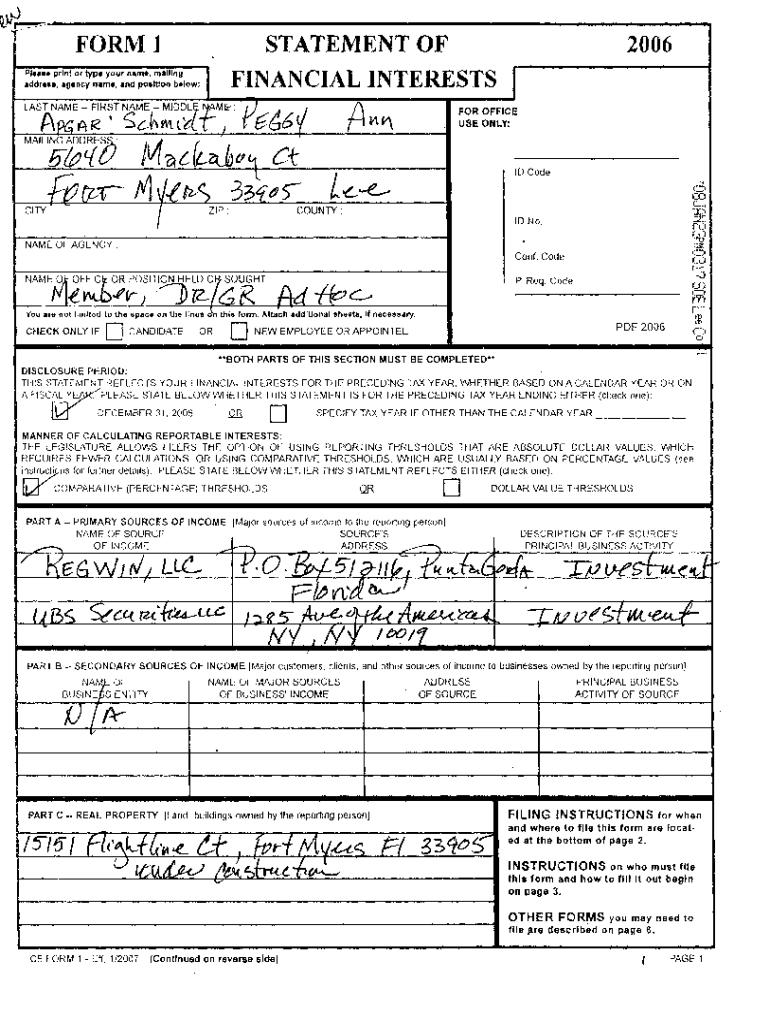 FORM 1 STATEMENT OF 2006
Please print or type your name, mailing
address, agency name, and position below:
FINANCIAL INTERESTS
LAST NAME – FIRST NAME – MIDDLE NAME :
Apgar Schmidt, Peggy Ann
FOR OFFICE
USE ONLY:
MAILING ADDRESS :
5640 Mackaboy Ct
ID Code
Fort Myers 33905 Lee
CITY : ZIP : COUNTY :
ID No.
NAME OF AGENCY :
Conf. Code
NAME OF OFFICE OR POSITION HELD OR SOUGHT
P. Req. Code
Member, DR/GR Ad Hoc
You are not limited to the space on the lines on this form. Attach additional sheets, if necessary.
CHECK ONLY IF CANDIDATE OR NEW EMPLOYEE OR APPOINTEE
PDF 2006
**BOTH PARTS OF THIS SECTION MUST BE COMPLETED**
DISCLOSURE PERIOD:
THIS STATEMENT REFLECTS YOUR FINANCIAL INTERESTS FOR THE PRECEDING TAX YEAR, WHETHER BASED ON A CALENDAR YEAR OR ON
A FISCAL YEAR. PLEASE STATE BELOW WHETHER THIS STATEMENT IS FOR THE PRECEDING TAX YEAR ENDING EITHER (check one):
DECEMBER 31, 2006 OR SPECIFY TAX YEAR IF OTHER THAN THE CALENDAR YEAR
MANNER OF CALCULATING REPORTABLE INTERESTS:
THE LEGISLATURE ALLOWS FILERS THE OPTION OF USING REPORTING THRESHOLDS THAT ARE ABSOLUTE DOLLAR VALUES, WHICH
REQUIRES FEWER CALCULATIONS, OR USING COMPARATIVE THRESHOLDS, WHICH ARE USUALLY BASED ON PERCENTAGE VALUES (see
instructions for further details). PLEASE STATE BELOW WHETHER THIS STATEMENT REFLECTS EITHER (check one):
COMPARATIVE (PERCENTAGE) THRESHOLDS OR DOLLAR VALUE THRESHOLDS
PART A – PRIMARY SOURCES OF INCOME [Major sources of income to the reporting person]
NAME OF SOURCE SOURCE'S DESCRIPTION OF THE SOURCE'S
OF INCOME ADDRESS PRINCIPAL BUSINESS ACTIVITY
REGWIN, LLC P.O. Box 512116, Punta Gorda Investment
Florida
UBS Securities LLC 1285 Ave of the Americas Investment
NY, NY 10019
PART B – SECONDARY SOURCES OF INCOME [Major customers, clients, and other sources of income to businesses owned by the reporting person]
NAME OF NAME OF MAJOR SOURCES ADDRESS PRINCIPAL BUSINESS
BUSINESS ENTITY OF BUSINESS' INCOME OF SOURCE ACTIVITY OF SOURCE
N/A
PART C – REAL PROPERTY [Land, buildings owned by the reporting person]
15151 Flightline Ct, Fort Myers Fl 33905
under construction
FILING INSTRUCTIONS for when
and where to file this form are locat-
ed at the bottom of page 2.
INSTRUCTIONS on who must file
this form and how to fill it out begin
on page 3.
OTHER FORMS you may need to
file are described on page 6.
CE FORM 1 - Eff. 1/2007 (Continued on reverse side) PAGE 1